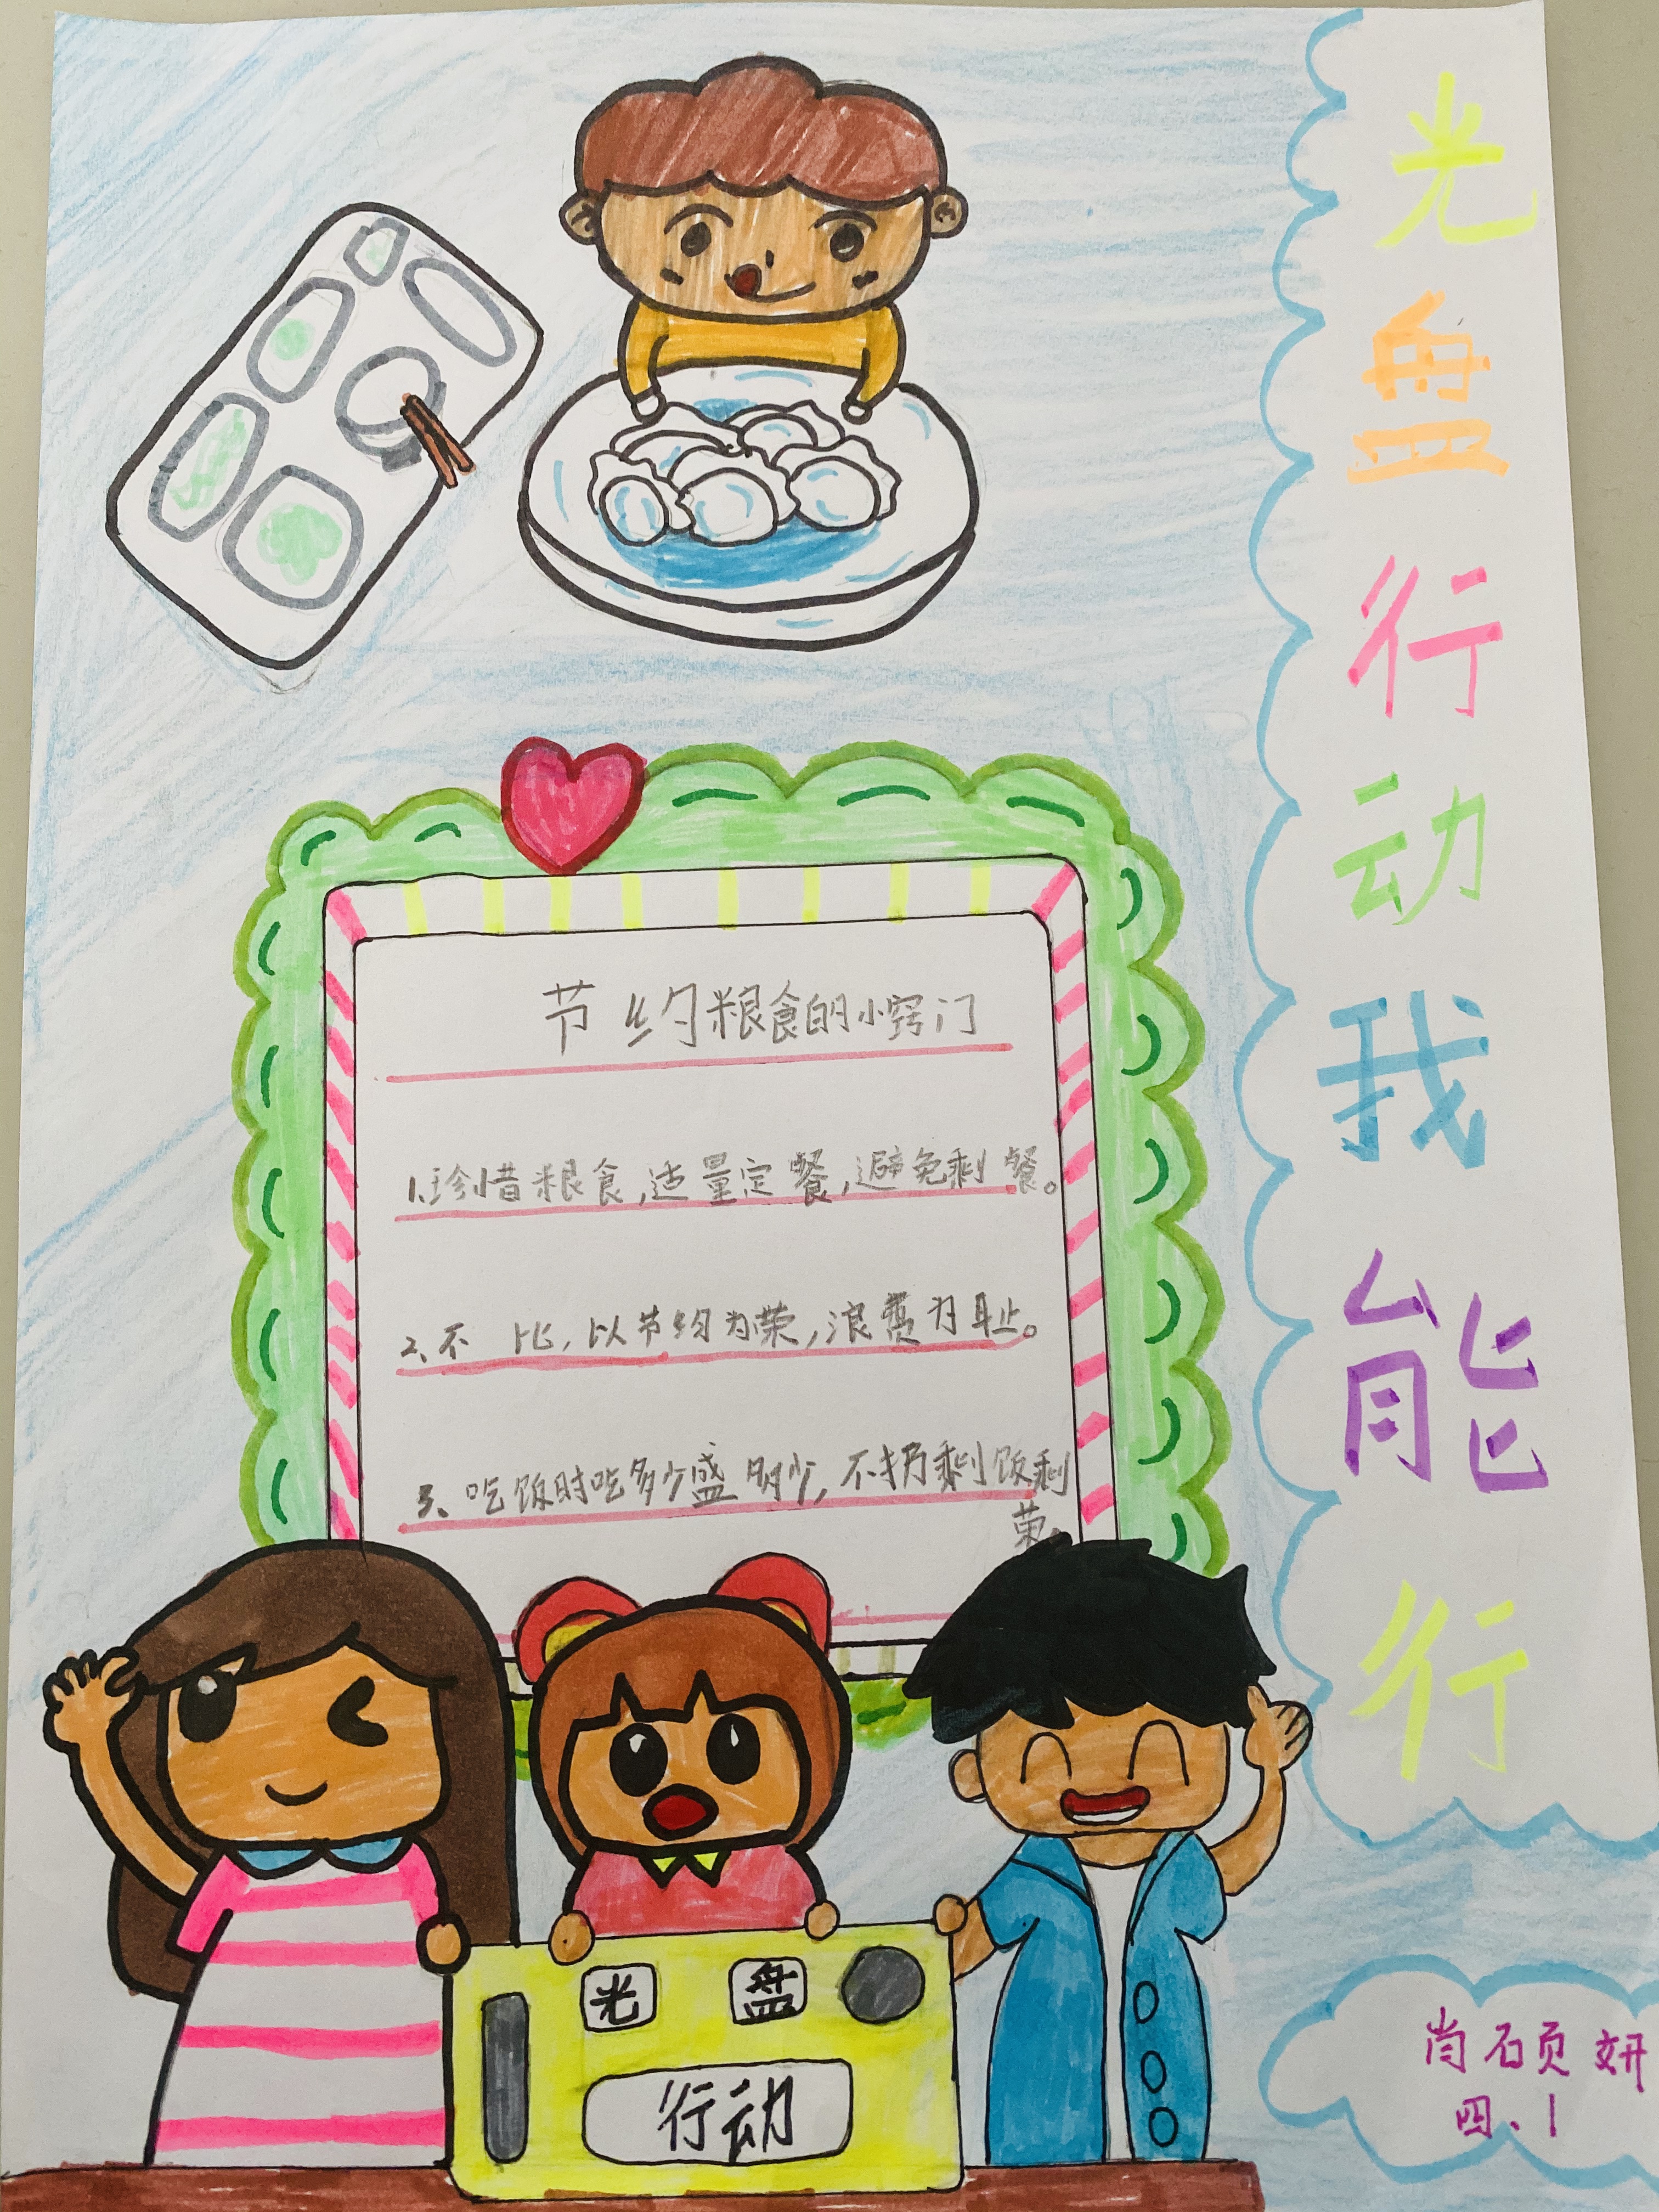 光盘行动我能行
节约粮食的小窍门
1.珍惜粮食,适量定餐,避免剩餐。
2、不 比,以节约为荣,浪费为耻。
3、吃饭时吃多少盛多少,不扔剩饭剩
菜。
光 盘
行动
肖硕妍
四、1